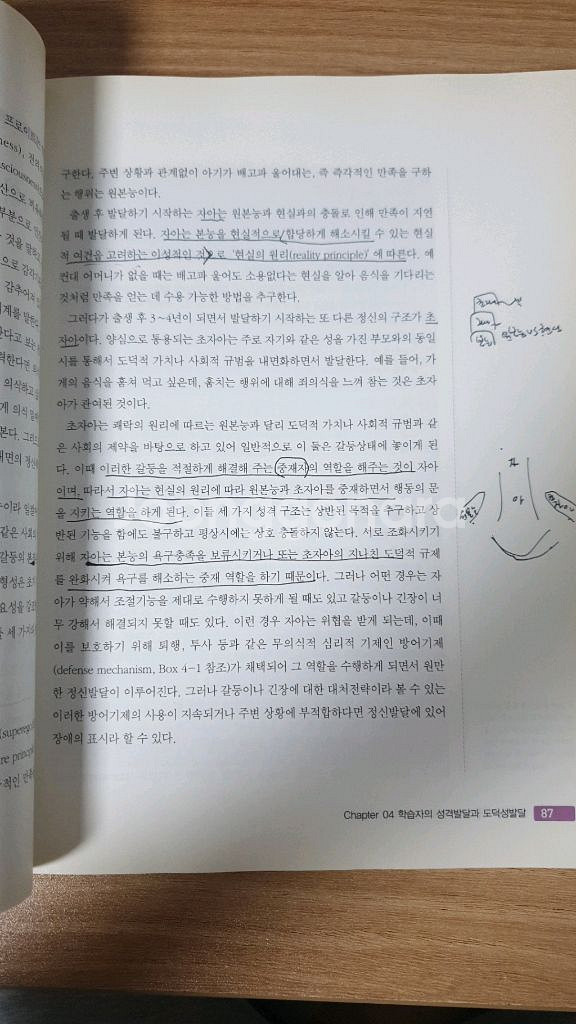 구한다. 주변 상황과 관계없이 아기가 배고파 울어대는, 즉 즉각적인 만족을 구하
는 행위는 원본능이다.
출생 후 발달하기 시작하는 자아는 원본능과 현실과의 충돌로 인해 만족이 지연
될 때 발달하게 된다. 자아는 본능을 현실적으로/합당하게 해소시킬 수 있는 현실
적 여건을 고려하는 이성적인 것으로 '현실의 원리(reality principle)'에 따른다. 예
컨대 어머니가 없을 때는 배고파 울어도 소용없다는 현실을 알아 음식을 기다리는
것처럼 만족을 얻는 데 수용 가능한 방법을 추구한다.
그러다가 출생 후 3~4년이 되면서 발달하기 시작하는 또 다른 정신의 구조가 초
자아이다. 양심으로 통용되는 초자아는 주로 자기와 같은 성을 가진 부모와의 동일
시를 통해서 도덕적 가치나 사회적 규범을 내면화하면서 발달한다. 예를 들어, 가
게의 음식을 훔쳐 먹고 싶은데, 훔치는 행위에 대해 죄의식을 느껴 참는 것은 초자
아가 관여된 것이다.
초자아는 쾌락의 원리에 따르는 원본능과 달리 도덕적 가치나 사회적 규범과 같
은 사회의 제약을 바탕으로 하고 있어 일반적으로 이 둘은 갈등상태에 놓이게 된
다. 이때 이러한 갈등을 적절하게 해결해 주는 중재자의 역할을 해주는 것이 자아
이며, 따라서 자아는 현실의 원리에 따라 원본능과 초자아를 중재하면서 행동의 문
을 지키는 역할을 하게 된다. 이들 세 가지 성격 구조는 상반된 목적을 추구하고 상
반된 기능을 함에도 불구하고 평상시에는 상호 충돌하지 않는다. 서로 조화시키기
위해 자아는 본능의 욕구충족을 보류시키거나 또는 초자아의 지나친 도덕적 규제
를 완화시켜 욕구를 해소하는 중재 역할을 하기 때문이다. 그러나 어떤 경우는 자
아가 약해서 조절기능을 제대로 수행하지 못하게 될 때도 있고 갈등이나 긴장이 너
무 강해서 해결되지 못할 때도 있다. 이런 경우 자아는 위협을 받게 되는데, 이때
이를 보호하기 위해 퇴행, 투사 등과 같은 무의식적 심리적 기제인 방어기제
(defense mechanism, Box 4-1 참조)가 채택되어 그 역할을 수행하게 되면서 원만
한 정신발달이 이루어진다. 그러나 갈등이나 긴장에 대한 대처전략이라 볼 수 있는
이러한 방어기제의 사용이 지속되거나 주변 상황에 부적합하다면 정신발달에 있어
장애의 표시라 할 수 있다.
Chapter 04 학습자의 성격발달과 도덕성발달 87